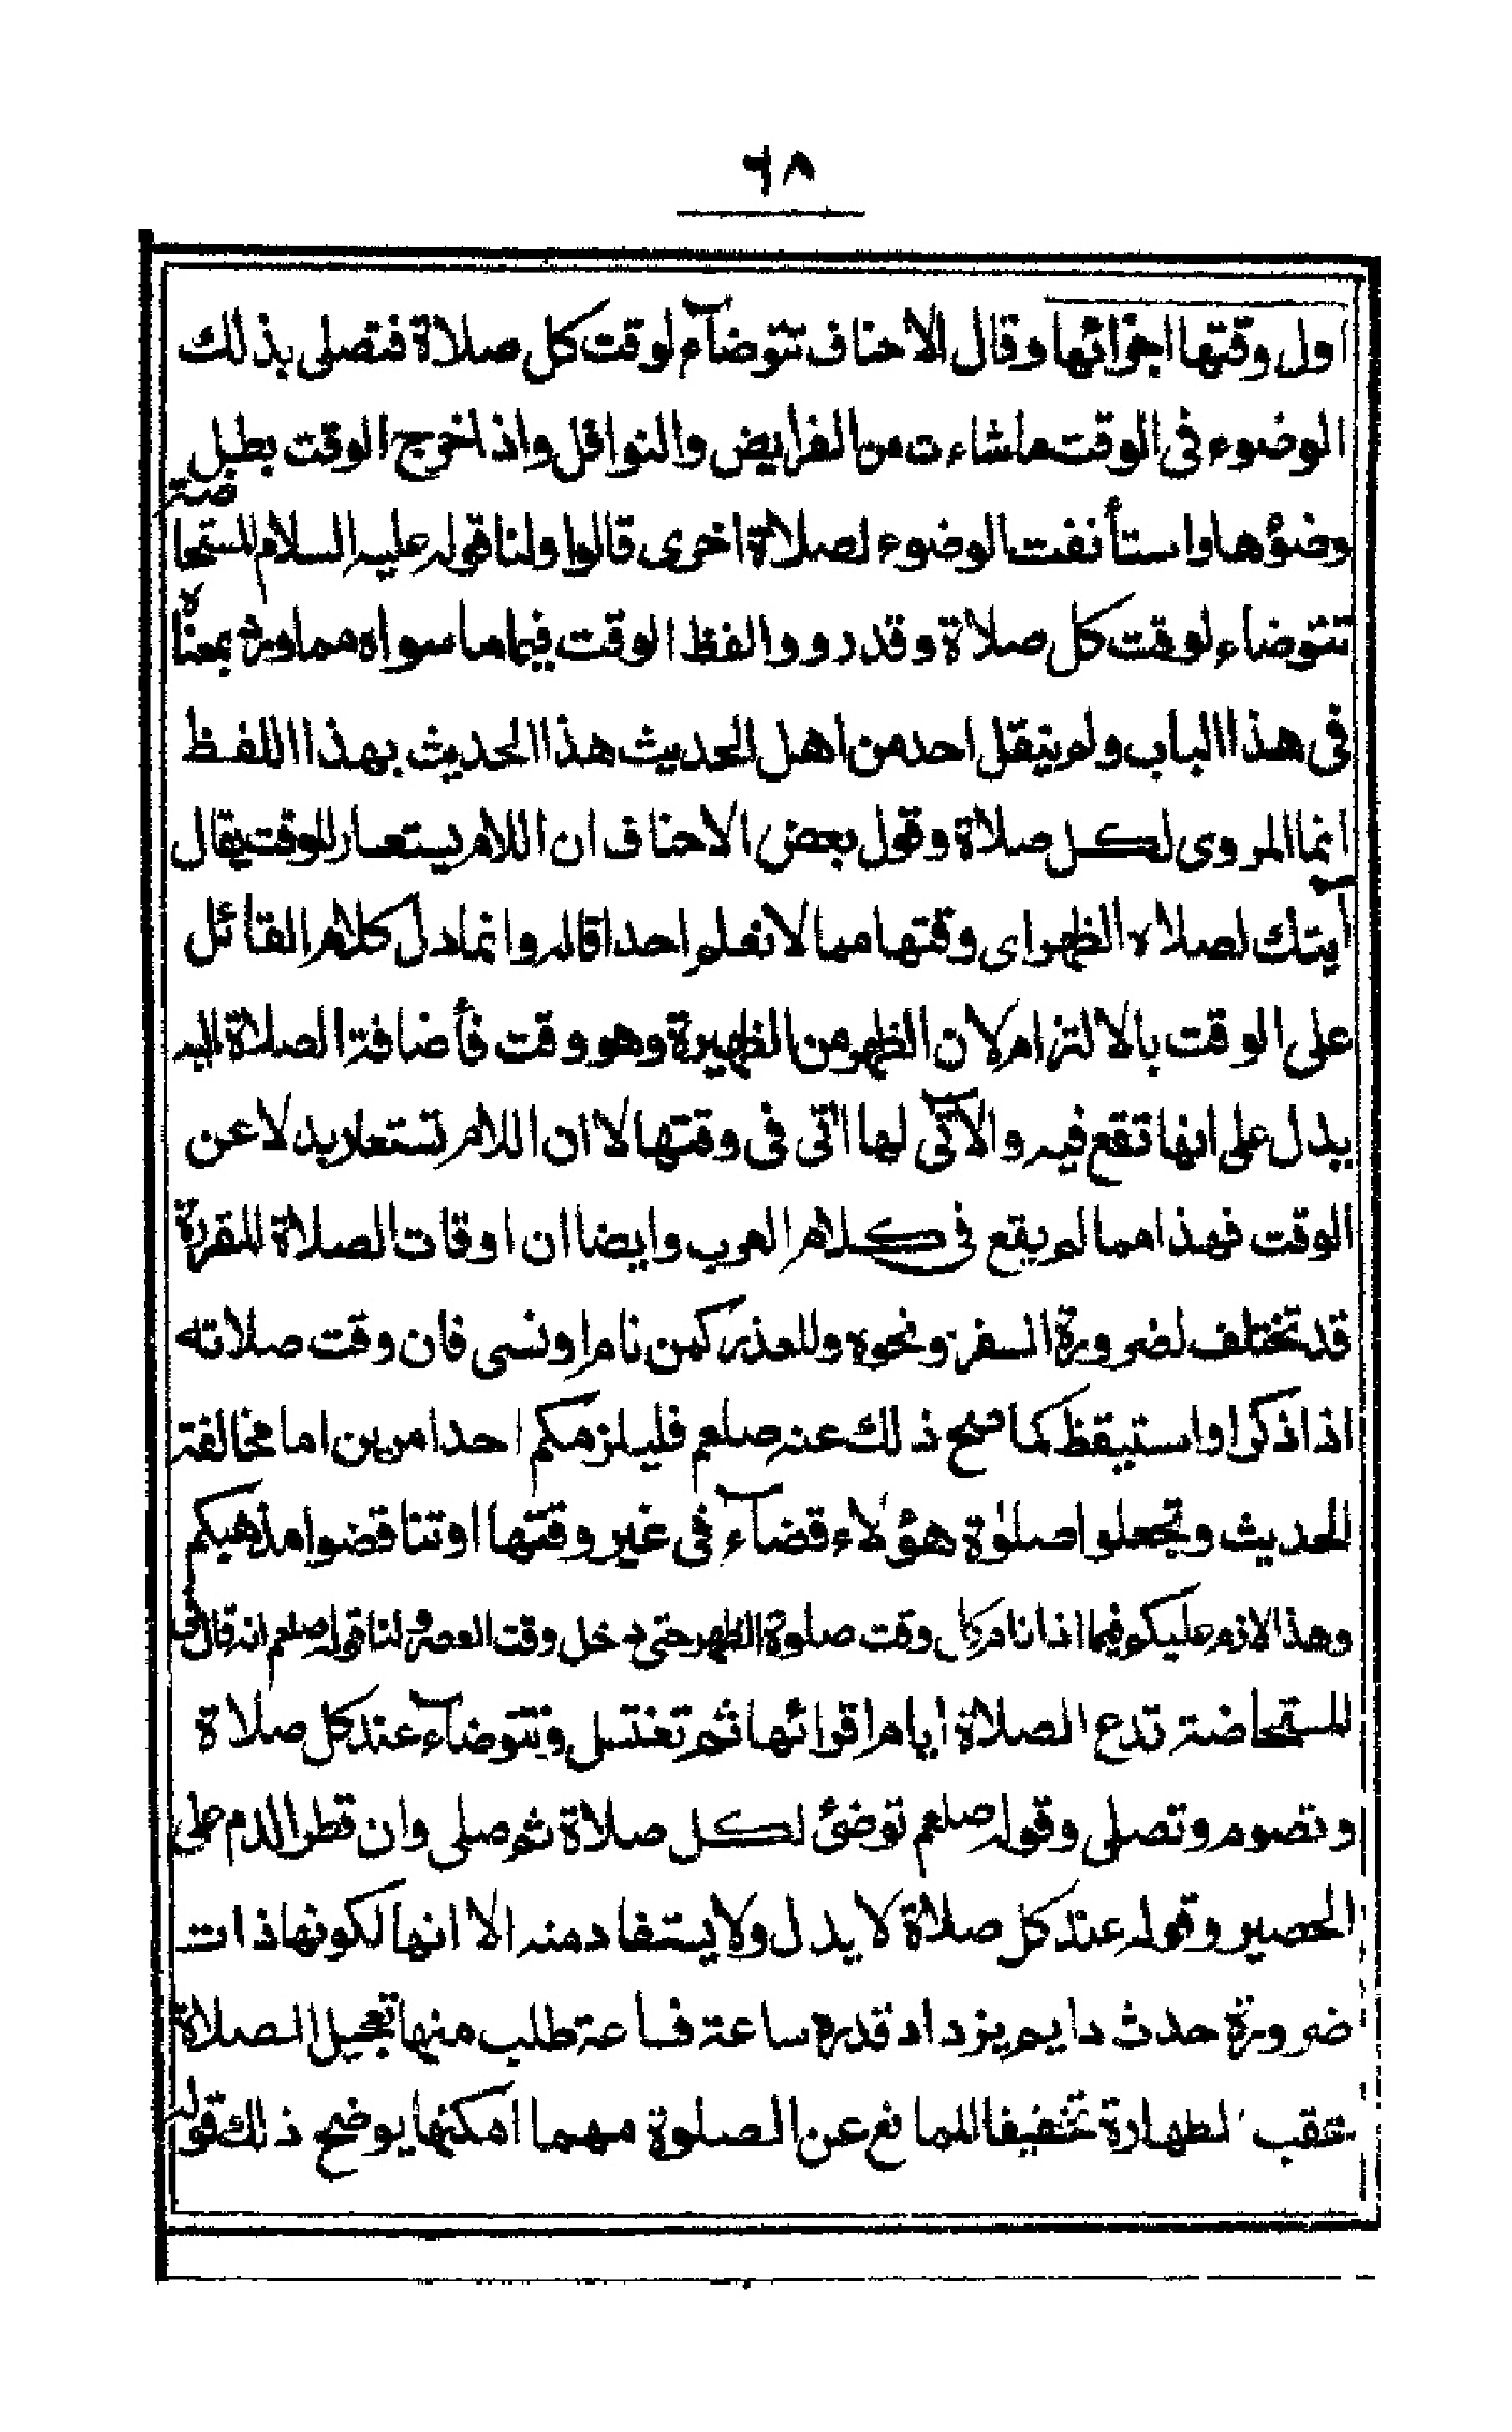 ٦٨
اول وقتها اجزائها وقال الاحناف تتوضآء لوقت كل صلاة فتصلى بذلك
الوضوء فى الوقت ماشاءت من الفرايض والنوافل واذا خرج الوقت بطل
وضوؤها واستأنفت الوضوء لصلاة اخرى قالوا ولنا قوله عليه السلام للمستحاضة
تتوضاء لوقت كل صلاة وقد رووا لفظ الوقت فيما سواه مما ورد بمعناه
فى هذا الباب ولم ينقل احد من اهل الحديث هذا الحديث بهذا اللفظ
انما المروى لكل صلاة وقول بعض الاحناف ان اللام يستعار للوقت يقال
آيتك لصلاه الظهر اى وقتها مما لا نعلم احدا قاله وانما دل كلام القائل
على الوقت بالالتزام لان الظهر من الظهيرة وهو وقت فأضافة الصلاة اليه
يدل على انها تقع فيه والآتى لها اتى فى وقتها لا ان اللام تستعار بدلا عن
الوقت فهذا مما لم يقع فى كلام العرب وايضا ان اوقات الصلاة المقررة
قد تختلف لضرورة السفر ونحوه وللعذر كمن نام او نسى فان وقت صلاته
اذا ذكر او استيقظ كما صح ذلك عنه صلعم فليلزمكم احد امرين اما مخالفة
الحديث وتجعلوا صلوٰة هؤلاء قضآء فى غير وقتها او تناقضوا مذهبكم
وهذا لازم عليكم فيما اذا نام كل وقت صلوة الظهر حتى دخل وقت العصر ولنا قوله صلعم انه قال فى
المستحاضة تدع الصلاة ايام اقرائها ثم تغتسل وتتوضآء عند كل صلاة
وتصوم وتصلى وقوله صلعم توضئ لكل صلاة ثم صلى وان قطر الدم على
الحصير وقوله عند كل صلاة لا يدل ولا يستفاد منه الا انها لكونها ذات
ضرورة حدث دايم يزداد قدره ساعة فساعة طلب منها تعجيل الصلاة
عقب الطهارة تخفيفا للمانع عن الصلوة مهما امكنها يوضح ذلك قوله